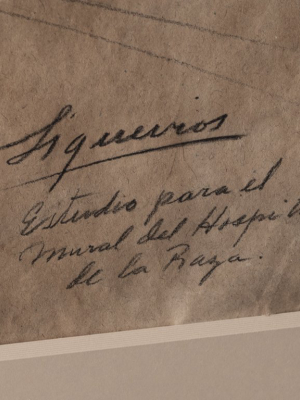 Siqueiros
Estudio para el
Mural del Hospi
de la Raza.